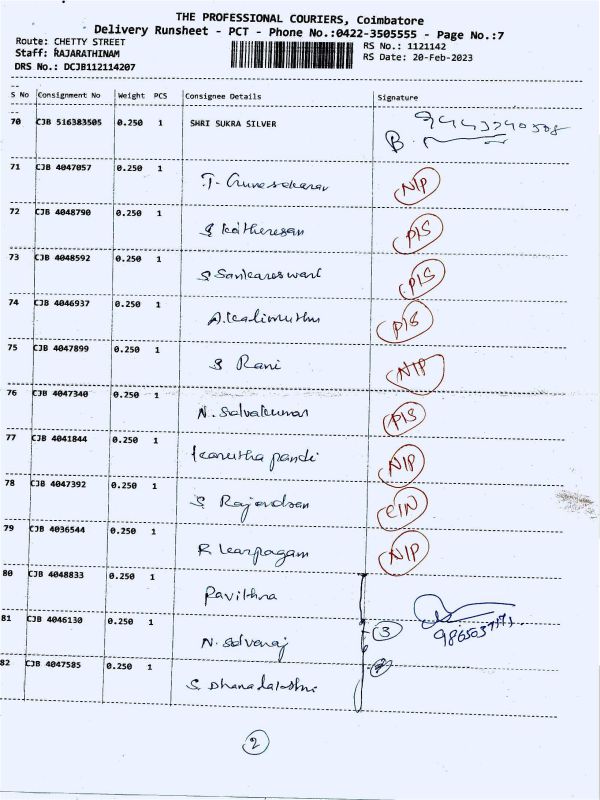 THE PROFESSIONAL COURIERS, Coimbatore
Delivery Runsheet - PCT - Phone No.:0422-3505555 - Page No.:7
Route: CHETTY STREET RS No.: 1121142
Staff: RAJARATHINAM RS Date: 20-Feb-2023
DRS No.: DCJB112114207
S No Consignment No Weight PCS Consignee Details Signature
70 CJB 516383505 0.250 1 SHRI SUKRA SILVER
B.
71 CJB 4047057 0.250 1 T. Gunasekaran N/P
72 CJB 4048790 0.250 1 S Katheresan P/S
73 CJB 4048592 0.250 1 S Sankareswari P/S
74 CJB 4046937 0.250 1 A. Kalimuthu P/S
75 CJB 4047899 0.250 1 S Rani N/P
76 CJB 4047340 0.250 1 N. Selvakumar P/S
77 CJB 4041844 0.250 1 Karutha pandi N/P
78 CJB 4047392 0.250 1 S. Rajendran C/N
79 CJB 4036544 0.250 1 R Karpagam N/P
80 CJB 4048833 0.250 1 Pavithra
81 CJB 4046130 0.250 1 N. Selvaraj 3
82 CJB 4047585 0.250 1
2